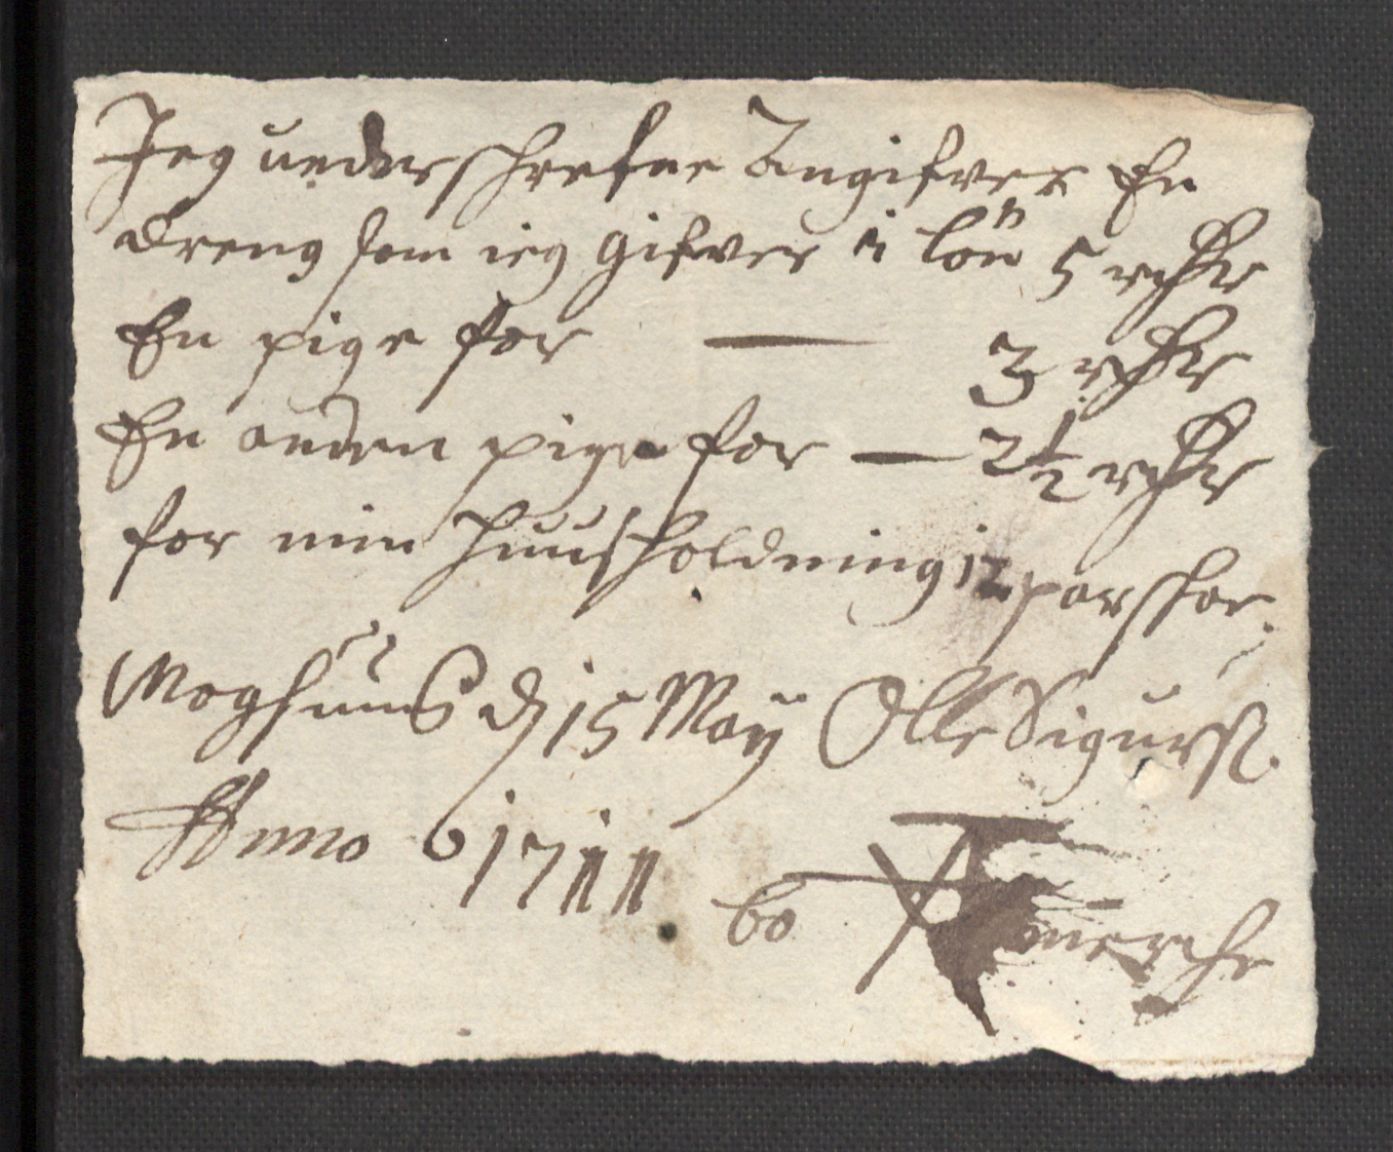 Jeg underschrefne Angifver En
dreng som ieg gifver i lön 5 rdlr
En pige for — 3 rdlr
En anden pige for — 2½ rdlr
for min Huusholdning 12 par skoe.
Moghuus d 15 Maij Olle Sigurs.
Anno 1711
bo merche